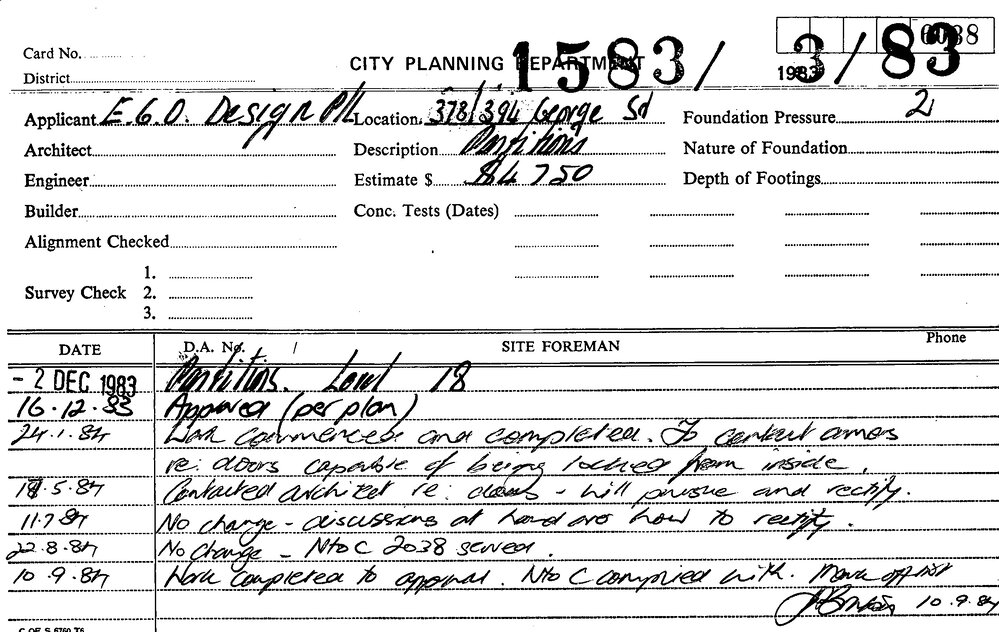 Card No.
District
CITY PLANNING DEPARTMENT
1583/3/83
1983
Applicant E.G.O. Design P/L
Location 378/394 George St
Foundation Pressure 2
Architect
Description Partitions
Nature of Foundation
Engineer
Estimate $ $4750
Depth of Footings
Builder
Conc. Tests (Dates)
Alignment Checked
Survey Check 1.
2.
3.
DATE D.A. No. / SITE FOREMAN Phone
- 2 DEC 1983 Partitions. Level 18
16.12.83 Approved (per plan)
24.1.84 Work commenced and completed. To contact owners
re: doors capable of being locked from inside.
18.5.84 Contacted architect re: doors - will pursue and rectify.
11.7.84 No change - discussions at hand over how to rectify.
22.8.84 No change - N to C 2038 served.
10.9.84 Work completed to approval. N to C complied with. Mark off list
10.9.84
C OF S 6760 T6